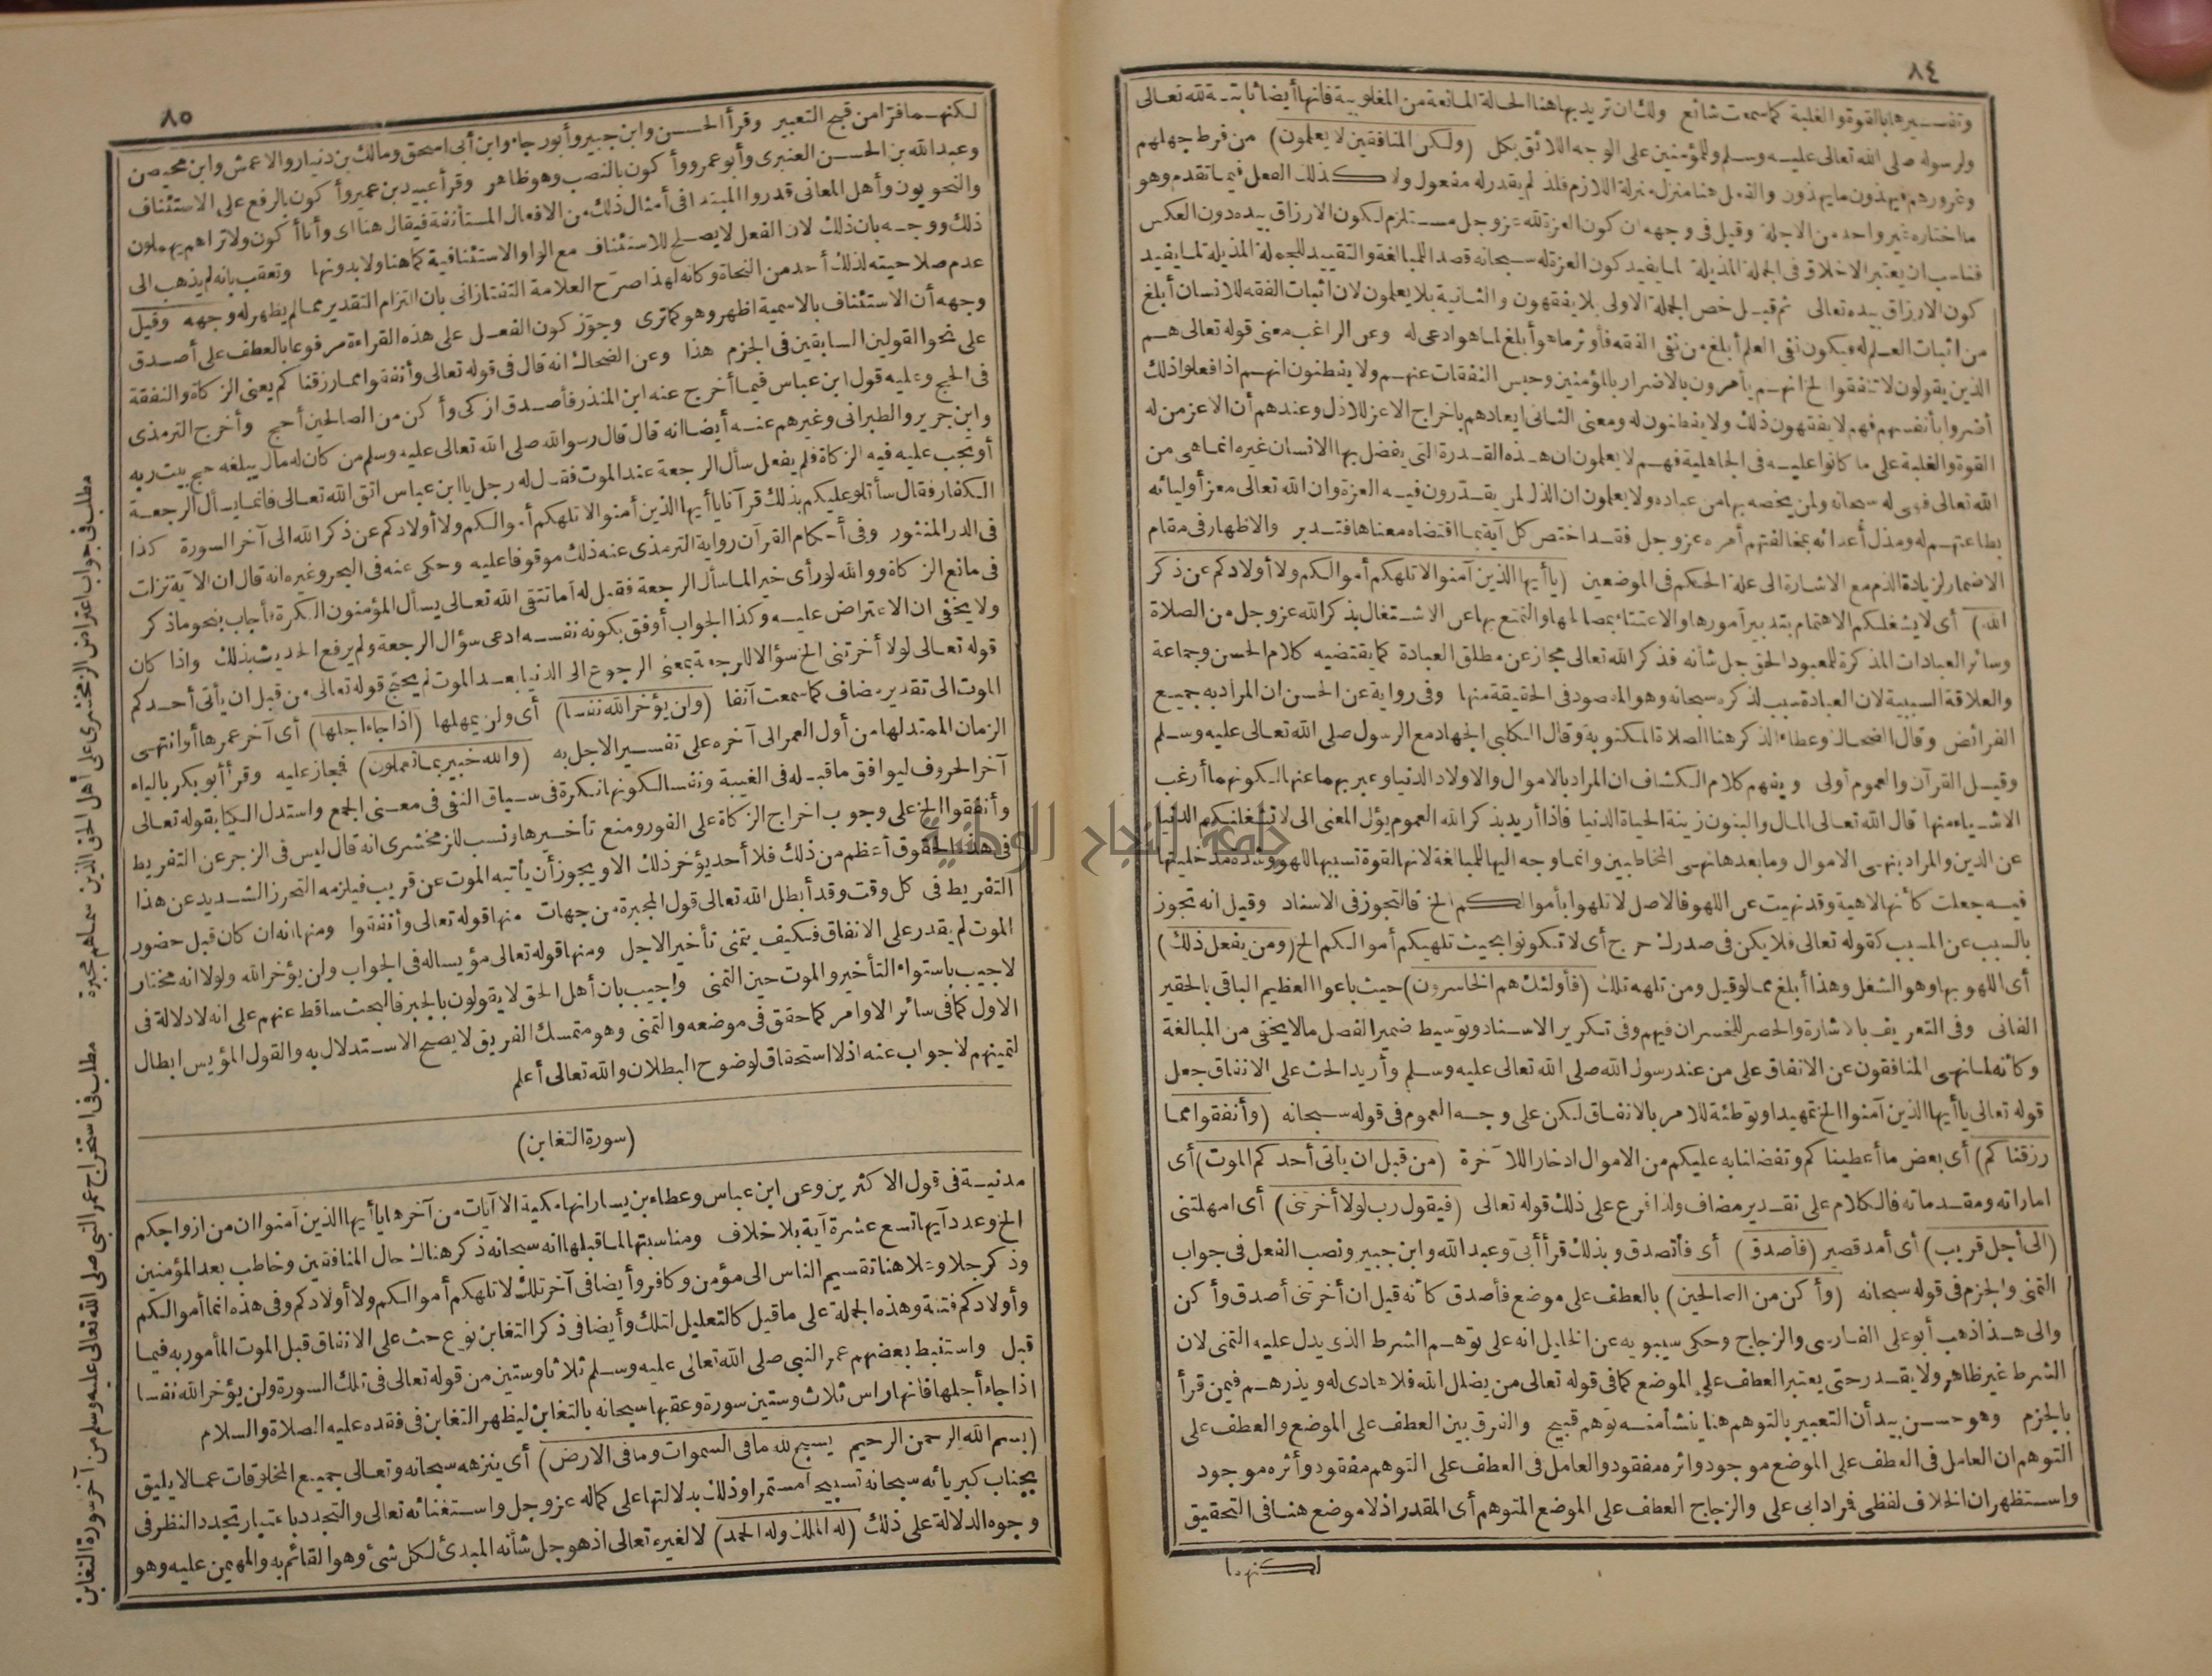 ٨٤
وتفسيرها بالقوة والغلبة كما سمعت شائع ولك ان تريد بها هنا الحالة المانعة من المغلوبية فانها أيضا ثابتة لله تعالى
ولرسوله صلى الله تعالى عليه وسلم وللمؤمنين على الوجه اللائق بكل (ولكن المنافقين لا يعلمون) من فرط جهلهم
وغرورهم فيهذون ما يهذون والفعل هنا منزل منزلة اللازم فلذ لم يقدر له مفعول ولا كذلك الفعل فيما تقدم وهو
ما اختاره غير واحد من الاجلة وقيل فى وجهه ان كون العزة لله عز وجل مستلزم لكون الارزاق بيده دون العكس
فناسب ان يعتبر الاخلاق فى الجملة المذيلة لما يفيد كون العزة له سبحانه قصدا للمبالغة والتقييد للجملة المذيلة لما يفيد
كون الارزاق بيده تعالى ثم قيل خص الجملة الاولى بلا يفقهون والثانية بلا يعلمون لان اثبات الفقه للانسان أبلغ
من اثبات العلم له فيكون نفى العلم أبلغ من نفى الفقه فأوثر ما هو أبلغ لما هو ادعى له وعن الراغب معنى قوله تعالى هم
الذين يقولون لا تنفقوا الخ انهم يأمرون بالاضرار بالمؤمنين وحبس النفقات عنهم ولا يفطنون انهم اذا فعلوا ذلك
أضروا بأنفسهم فهم لا يفقهون ذلك ولا يفطنون له ومعنى الثانى ايعادهم باخراج الاعز للاذل وعندهم أن الاعز من له
القوة والغلبة على ما كانوا عليه فى الجاهلية فهم لا يعلمون ان هذه القدرة التى يفضل بها الانسان غيره انما هى من
الله تعالى فهى له سبحانه ولمن يخصه بها من عباده ولا يعلمون ان الذل لمن يقدرون فيه العزة وان الله تعالى معز أوليائه
بطاعتهم له ومذل أعدائه بمخالفتهم أمره عز وجل فقد اختص كل آية بما اقتضاه معناها فتدبر والاظهار فى مقام
الاضمار لزيادة الذم مع الاشارة الى علة الحكم فى الموضعين (يا أيها الذين آمنوا لا تلهكم أموالكم ولا أولادكم عن ذكر
الله) أى لا يشغلكم الاهتمام بتدبير أمورها والاعتناء بمصالحها والتمتع بها عن الاشتغال بذكر الله عز وجل من الصلاة
وسائر العبادات المذكرة للمعبود الحق جل شأنه فذكر الله تعالى مجاز عن مطلق العبادة كما يقتضيه كلام الحسن وجماعة
والعلاقة السببية لان العبادة سبب لذكره سبحانه وهو المقصود فى الحقيقة منها وفى رواية عن الحسن ان المراد به جميع
الفرائض وقال الضحاك وعطاء الذكر هنا الصلاة المكتوبة وقال الكلبى الجهاد مع الرسول صلى الله تعالى عليه وسلم
وقيل القرآن والعموم أولى ويفهم كلام الكشاف ان المراد بالاموال والاولاد الدنيا وعبر بهما عنها لكونهما أرغب
الاشياء منها قال الله تعالى المال والبنون زينة الحياة الدنيا فاذا أريد بذكر الله العموم يؤل المعنى الى لا تشغلنكم الدنيا
عن الدين والمراد بنهى الاموال وما بعدها نهى المخاطبين وانما وجه اليها للمبالغة لانها لقوة تسببها للهو وشدة مدخليتها
فيه جعلت كأنها لاهية وقد نهيت عن اللهو فالاصل لا تلهوا بأموالكم الخ فالتجوز فى الاسناد وقيل انه تجوز
بالسبب عن المسبب كقوله تعالى فلا يكن فى صدرك حرج أى لا تكونوا بحيث تلهيكم أموالكم الخ (ومن يفعل ذلك)
أى اللهو بها وهو الشغل وهذا أبلغ مما لو قيل ومن تلهه تلك (فأولئك هم الخاسرون) حيث باعوا العظيم الباقى بالحقير
الفانى وفى التعريف بالاشارة والحصر للخسران فيهم وفى تكرير الاسناد وتوسيط ضمير الفصل ما لا يخفى من المبالغة
وكأنه لما نهى المنافقون عن الانفاق على من عند رسول الله صلى الله تعالى عليه وسلم وأريد الحث على الانفاق جعل
قوله تعالى يا أيها الذين آمنوا الخ تمهيدا وتوطئة للامر بالانفاق لكن على وجه العموم فى قوله سبحانه (وأنفقوا مما
رزقناكم) أى بعض ما أعطيناكم وتفضلنا به عليكم من الاموال ادخارا للآخرة (من قبل ان يأتى أحدكم الموت) أى
اماراته ومقدماته فالكلام على تقدير مضاف ولذا فرع على ذلك قوله تعالى (فيقول رب لولا أخرتنى) أى امهلتنى
(الى أجل قريب) أى أمد قصير (فأصدق) أى فأتصدق وبذلك قرأ أبىّ وعبد الله وابن جبير ونصب الفعل فى جواب
التمنى والجزم فى قوله سبحانه (وأكن من الصالحين) بالعطف على موضع فأصدق كأنه قيل ان أخرتنى أصدق وأكن
والى هذا ذهب أبو على الفارسى والزجاج وحكى سيبويه عن الخليل انه على توهم الشرط الذى يدل عليه التمنى لان
الشرط غير ظاهر ولا يقدر حتى يعتبر العطف على الموضع كما فى قوله تعالى من يضلل الله فلا هادى له ويذرهم فيمن قرأ
بالجزم وهو حسن بيد أن التعبير بالتوهم هنا ينشأ منه توهم قبيح والفرق بين العطف على الموضع والعطف على
التوهم ان العامل فى العطف على الموضع موجود واثره مفقود والعامل فى العطف على التوهم مفقود وأثره موجود
واستظهر ان الخلاف لفظى فمراد ابى على والزجاج العطف على الموضع المتوهم أى المقدر اذ لا موضع هنا فى التحقيق
لكنهما
٨٥
لكنهما فرا من قبح التعبير وقرأ الحسن وابن جبير وأبو رجاء وابن أبى اسحق ومالك بن دينار والاعمش وابن محيصن
وعبد الله بن الحسن العنبرى وأبو عمرو وأكون بالنصب وهو ظاهر وقرأ عبيد بن عمير وأكون بالرفع على الاستئناف
والنحويون وأهل المعانى قدروا المبتدا فى أمثال ذلك من الافعال المستأنفة فيقال هنا اى وأنا أكون ولا تراهم يهملون
ذلك ووجه بان ذلك لان الفعل لا يصلح للاستئناف مع الواو الاستئنافية كما هنا ولا بدونها وتعقب بانه لم يذهب الى
عدم صلاحيته لذلك أحد من النحاة وكانه لهذا صرح العلامة التفتازانى بان التزام التقدير مما لم يظهر له وجهه وقيل
وجهه أن الاستئناف بالاسمية اظهر وهو كما ترى وجوّز كون الفعل على هذه القراءة مرفوعا بالعطف على أصدق
على نحو القولين السابقين فى الجزم هذا وعن الضحاك انه قال فى قوله تعالى وأنفقوا مما رزقناكم يعنى الزكاة والنفقة
فى الحج وعليه قول ابن عباس فيما أخرج عنه ابن المنذر فأصدق ازكى وأكن من الصالحين أحج وأخرج الترمذى
وابن جرير والطبرانى وغيرهم عنه أيضا انه قال قال رسول الله صلى الله تعالى عليه وسلم من كان له مال يبلغه حج بيت ربه
أو يجب عليه فيه الزكاة فلم يفعل سأل الرجعة عند الموت فقال له رجل يا ابن عباس اتق الله تعالى فانما يسأل الرجعة
الكفار فقال سأتلو عليكم بذلك قرآنا يا أيها الذين آمنوا لا تلهكم أموالكم ولا أولادكم عن ذكر الله الى آخر السورة كذا
فى الدر المنثور وفى أحكام القرآن رواية الترمذى عنه ذلك موقوفا عليه وحكى عنه فى البحر وغيره انه قال ان الآية نزلت
فى مانع الزكاة ووالله لو رأى خيرا لما سأل الرجعة فقيل له أما تتقى الله تعالى يسأل المؤمنون الكرة فأجاب بنحو ما ذكر
ولا يخفى ان الاعتراض عليه وكذا الجواب أوفق بكونه نفسه ادعى سؤال الرجعة ولم يرفع الحديث بذلك واذا كان
قوله تعالى لولا أخرتنى الخ سؤالا للرجعة بمعنى الرجوع الى الدنيا بعد الموت لم يحتج قوله تعالى من قبل ان يأتى أحدكم
الموت الى تقدير مضاف كما سمعت آنفا (ولن يؤخر الله نفسا) أى ولن يمهلها (اذا جاء اجلها) أى آخر عمرها أو انتهى
الزمان الممتد لها من أول العمر الى آخره على تفسير الاجل به (والله خبير بما تعملون) فمجاز عليه وقرأ أبو بكر بالياء
آخر الحروف ليوافق ما قبله فى الغيبة ونفسا لكونها نكرة فى سياق النفى فى معنى الجمع واستدل الكيا بقوله تعالى
وأنفقوا الخ على وجوب اخراج الزكاة على الفور ومنع تأخيرها ونسب للزمخشرى انه قال ليس فى الزجر عن التفريط
فى هذه الحقوق أعظم من ذلك فلا أحد يؤخر ذلك الا ويجوز أن يأتيه الموت عن قريب فيلزمه التحرز الشديد عن هذا
التفريط فى كل وقت وقد أبطل الله تعالى قول المجبرة من جهات منها قوله تعالى وأنفقوا ومنها انه ان كان قبل حضور
الموت لم يقدر على الانفاق فكيف يتمنى تأخير الاجل ومنها قوله تعالى مؤيساله فى الجواب ولن يؤخر الله ولولا انه مختار
لاجيب باستواء التأخير والموت حين التمنى واجيب بان أهل الحق لا يقولون بالجبر فالبحث ساقط عنهم على انه لا دلالة فى
الاول كما فى سائر الاوامر كما حقق فى موضعه والتمنى وهو متمسك الفريق لا يصح الاستدلال به والقول المؤيس ابطال
لتمنيهم لا جواب عنه اذ لا استحقاق لوضوح البطلان والله تعالى أعلم
(سورة التغابن)
مدنية فى قول الاكثرين وعن ابن عباس وعطاء بن يسار انها مكية الا آيات من آخرها يا أيها الذين آمنوا ان من ازواجكم
الخ وعدد آيها تسع عشرة آية بلا خلاف ومناسبتها لما قبلها انه سبحانه ذكر هناك حال المنافقين وخاطب بعد المؤمنين
وذكر جل وعلا هنا تقسيم الناس الى مؤمن وكافر وأيضا فى آخر تلك لا تلهكم أموالكم ولا أولادكم وفى هذه انما أموالكم
وأولادكم فتنة وهذه الجملة على ما قيل كالتعليل لتلك وأيضا فى ذكر التغابن نوع حث على الانفاق قبل الموت المأمور به فيما
قبل واستنبط بعضهم عمر النبى صلى الله تعالى عليه وسلم ثلاثا وستين من قوله تعالى فى تلك السورة ولن يؤخر الله نفسا
اذا جاء أجلها فانها راس ثلاث وستين سورة وعقبها سبحانه بالتغابن ليظهر التغابن فى فقده عليه الصلاة والسلام
(بسم الله الرحمن الرحيم يسبح لله ما فى السموات وما فى الارض) أى ينزهه سبحانه وتعالى جميع المخلوقات عما لا يليق
بجناب كبريائه سبحانه تسبيحا مستمرا وذلك بدلالتها على كماله عز وجل واستغنائه تعالى والتجدد باعتبار تجدد النظر فى
وجوه الدلالة على ذلك (له الملك وله الحمد) لا لغيره تعالى اذ هو جل شأنه المبدئ لكل شئ وهو القائم به والمهيمن عليه وهو
مطلب فى جواب اعتراض الزمخشرى على أهل الحق الذين سماهم مجبرة
مطلب فى استخراج عمر النبى صلى الله تعالى عليه وسلم من آخر سورة التغابن
جامعة النجاح الوطنية